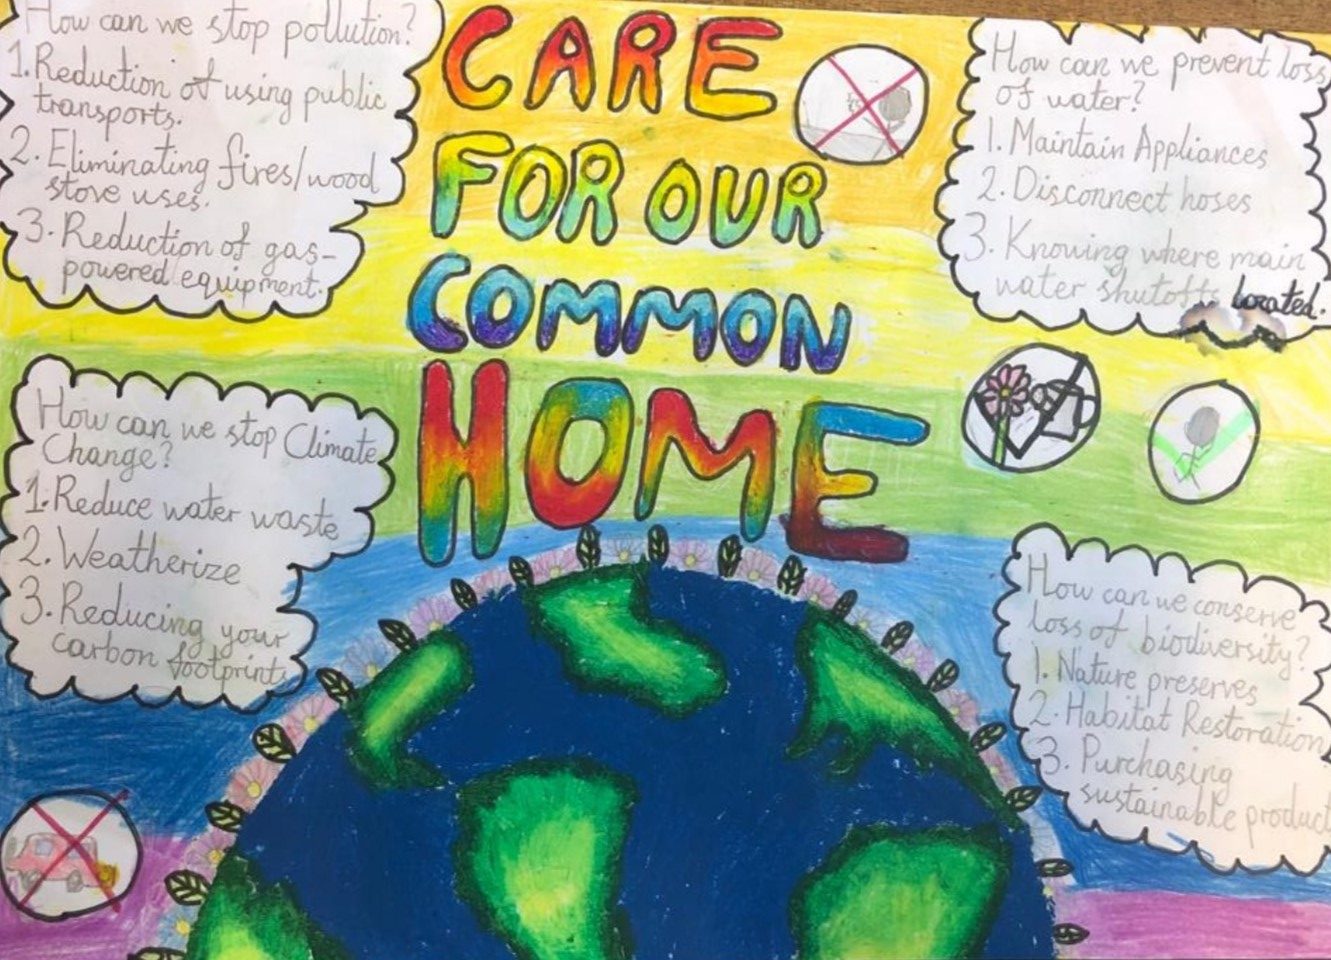 How can we stop pollution?
1. Reduction of using public
transports.
2. Eliminating fires/wood
stove uses.
3. Reduction of gas-
powered equipment.
CARE
FOR OUR
COMMON
HOME
How can we prevent loss
of water?
1. Maintain Appliances
2. Disconnect hoses
3. Knowing where main
water shutoff Located.
How can we stop Climate
Change?
1. Reduce water waste
2. Weatherize
3. Reducing your
carbon footprint
How can we conserve
loss of biodiversity?
1. Nature preserves
2. Habitat Restoration
3. Purchasing
sustainable product